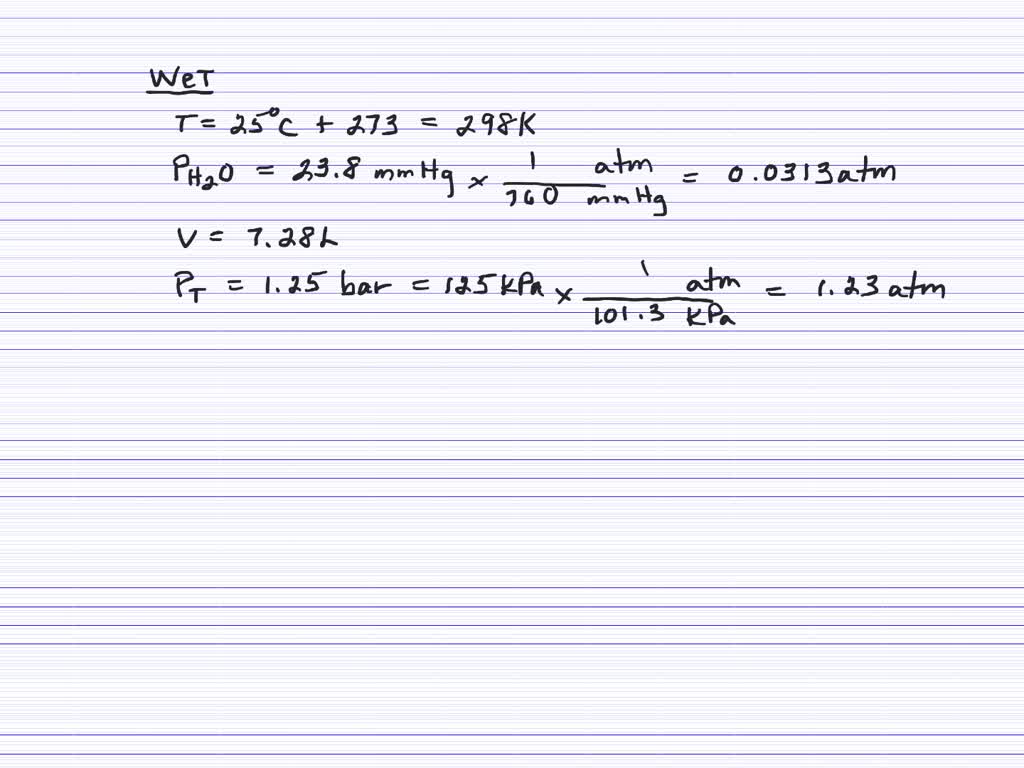 WeT
T = 25°C + 273 = 298K
P_H₂O = 23.8 mmHg × 1 atm / 760 mmHg = 0.0313 atm
V = 7.28L
P_T = 1.25 bar = 125 kPa × 1 atm / 101.3 kPa = 1.23 atm